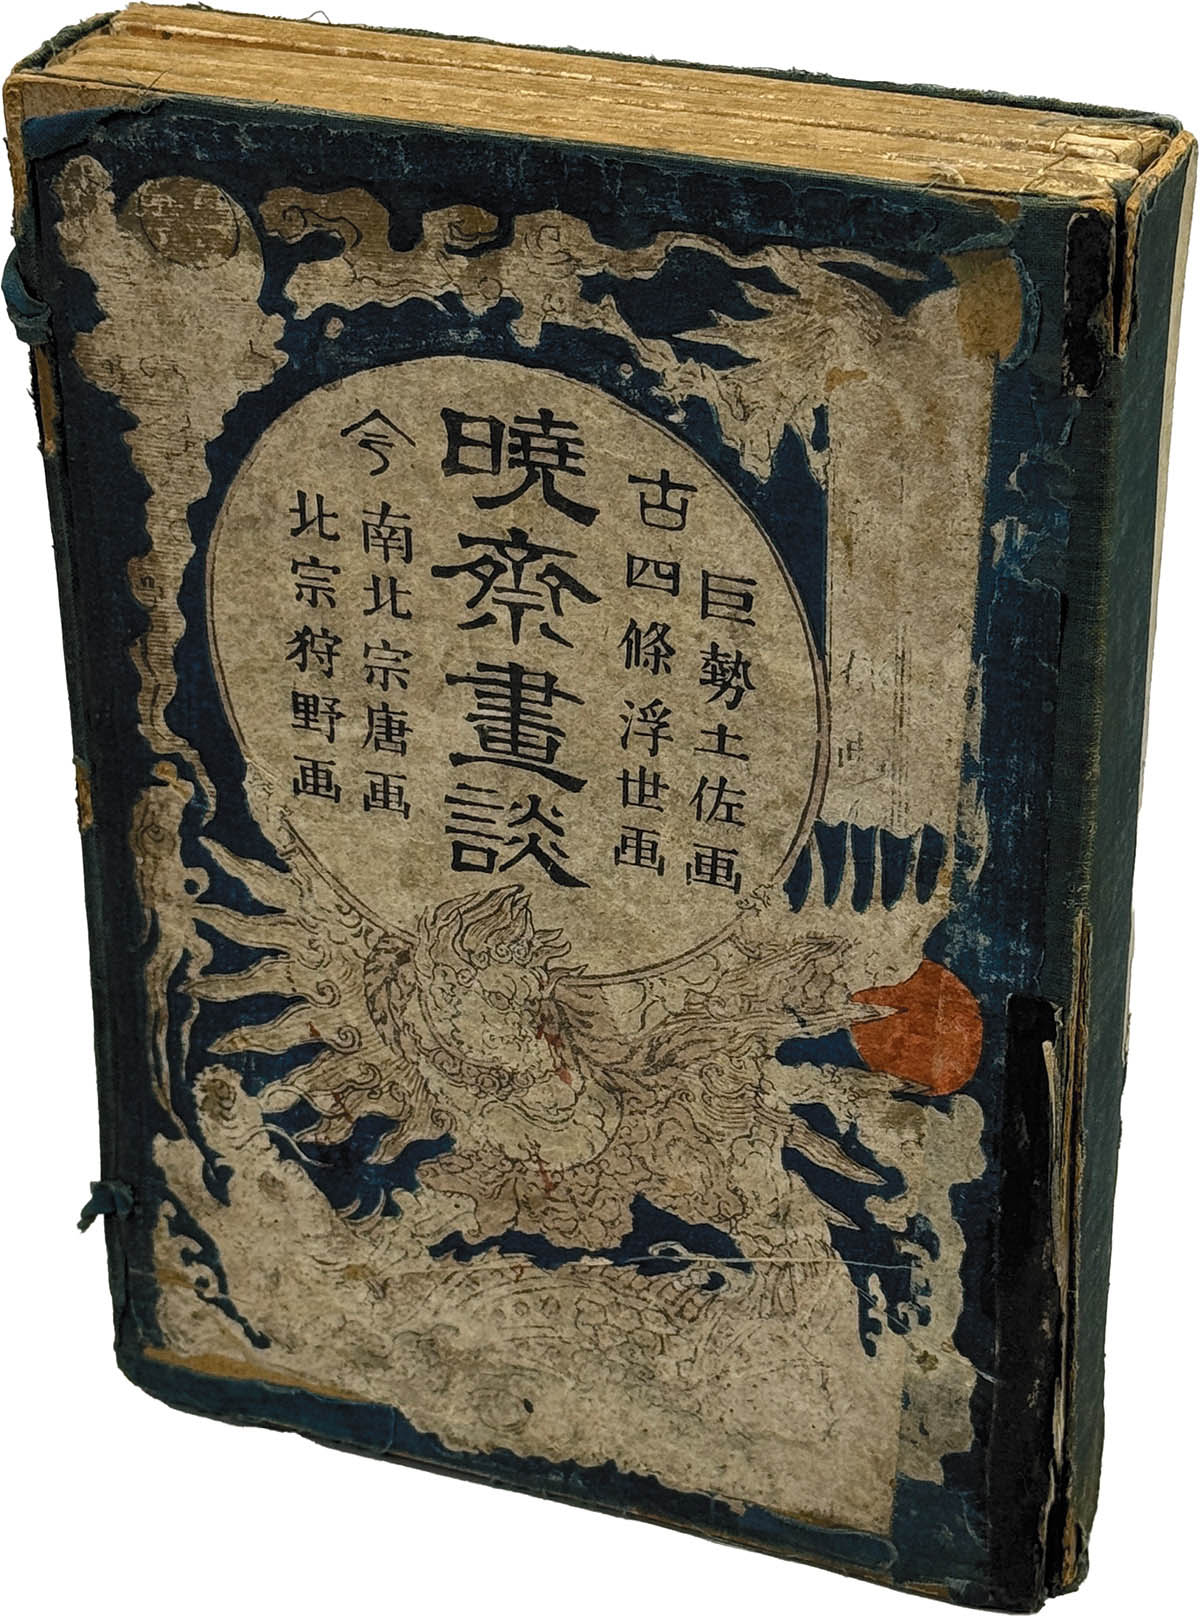 巨勢土佐画
古四條浮世画
暁斎畫談
今南北宗唐画
北宗狩野画